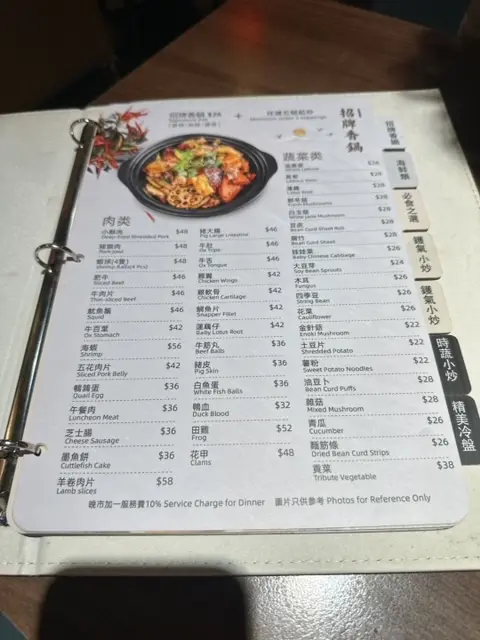 招牌香鍋 $26
+
招牌香鍋
肉类
小酥肉 $48
Deep-fried Shredded Pork
豬頸肉 $48
Pork Jowl
蝦球(4隻) $48
Shrimp Ball(4 Pcs)
肥牛 $46
Sliced Beef
牛肉片 $46
Thin-sliced Beef
魷魚鬚 $46
Squid
牛百葉 $42
Ox Stomach
海蝦 $56
Shrimp
五花肉片 $42
Sliced Pork Belly
鵪鶉蛋 $36
Quail Egg
午餐肉 $36
Luncheon Meat
芝士腸 $36
Cheese Sausage
墨魚餅 $36
Cuttlefish Cake
羊卷肉片 $58
Lamb slices
豬大腸 $46
Pig Large Intestine
牛肚 $46
Ox Tripe
牛舌 $46
Ox Tongue
雞翼 $42
Chicken Wings
雞軟骨 $42
Chicken Cartilage
鯛魚片 $42
Snapper Fillet
蓮藕仔 $42
Baby Lotus Root
牛筋丸 $36
Beef Balls
豬皮 $36
Pig Skin
白魚蛋 $36
White Fish Balls
鴨血 $32
Duck Blood
田雞 $52
Frog
花甲 $48
Clams
蔬菜类
$26
$28
$28
鮮冬菇 $28
Fresh Mushrooms
白玉菇 $28
White Jade Mushroom
豆皮 $28
Bean Curd Sheet Roll
腐竹 $26
Bean Curd Sheet
娃娃菜 $24
Baby Chinese Cabbage
大豆芽 $26
Soy Bean Sprouts
木耳 $26
Fungus
四季豆 $26
String Bean
花菜 $26
Cauliflower
金針菇 $22
Enoki Mushroom
土豆片 $22
Shredded Potato
薯粉 $22
Sweet Potato Noodles
油豆卜 $28
Bean Curd Puffs
雜菇 $28
Mixed Mushroom
青瓜 $26
Cucumber
麵筋條 $26
Dried Bean Curd Strips
貢菜 $38
Tribute Vegetable
晚市加一服務費10% Service Charge for Dinner 圖片只供參考 Photos for Reference Only
招牌香鍋
海鮮類
必食之選
鑊氣小炒
鑊氣小炒
時蔬小炒
精美冷盤